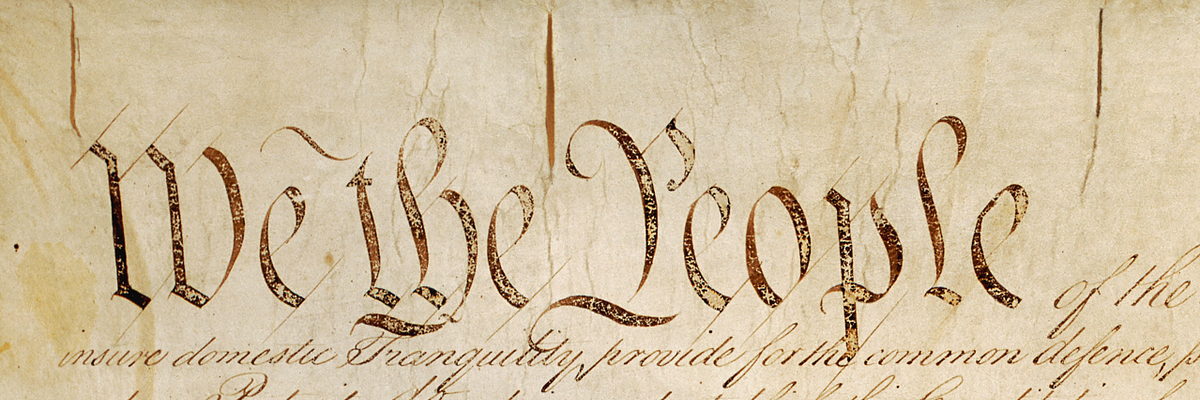 We the People of the
insure domestic Tranquility, provide for the common defence,